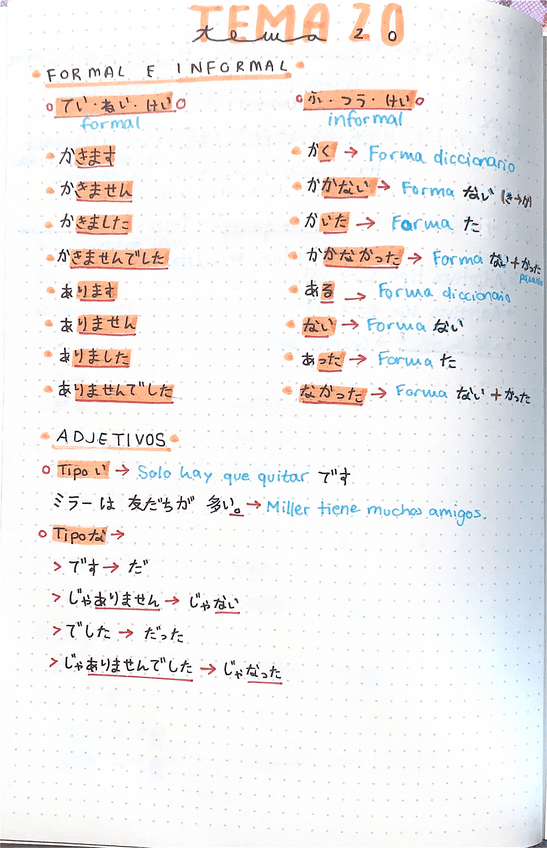 TEMA 20
tema 20
FORMAL E INFORMAL
てい・ねい・けい
formal
ふ・つう・けい
informal
かきます
かく → Forma diccionario
かきません
かかない → Forma ない (き→か)
かきました
かいた → Forma た
かきませんでした
かかなかった → Forma ない + かった
pasado
あります
ある → Forma diccionario
ありません
ない → Forma ない
ありました
あった → Forma た
ありませんでした
なかった → Forma ない + かった
ADJETIVOS
Tipo い → Solo hay que quitar です
ミラーは 友だちが 多い。→ Miller tiene muchos amigos.
Tipo な →
> です → だ
> じゃありません → じゃない
> でした → だった
> じゃありませんでした → じゃなった